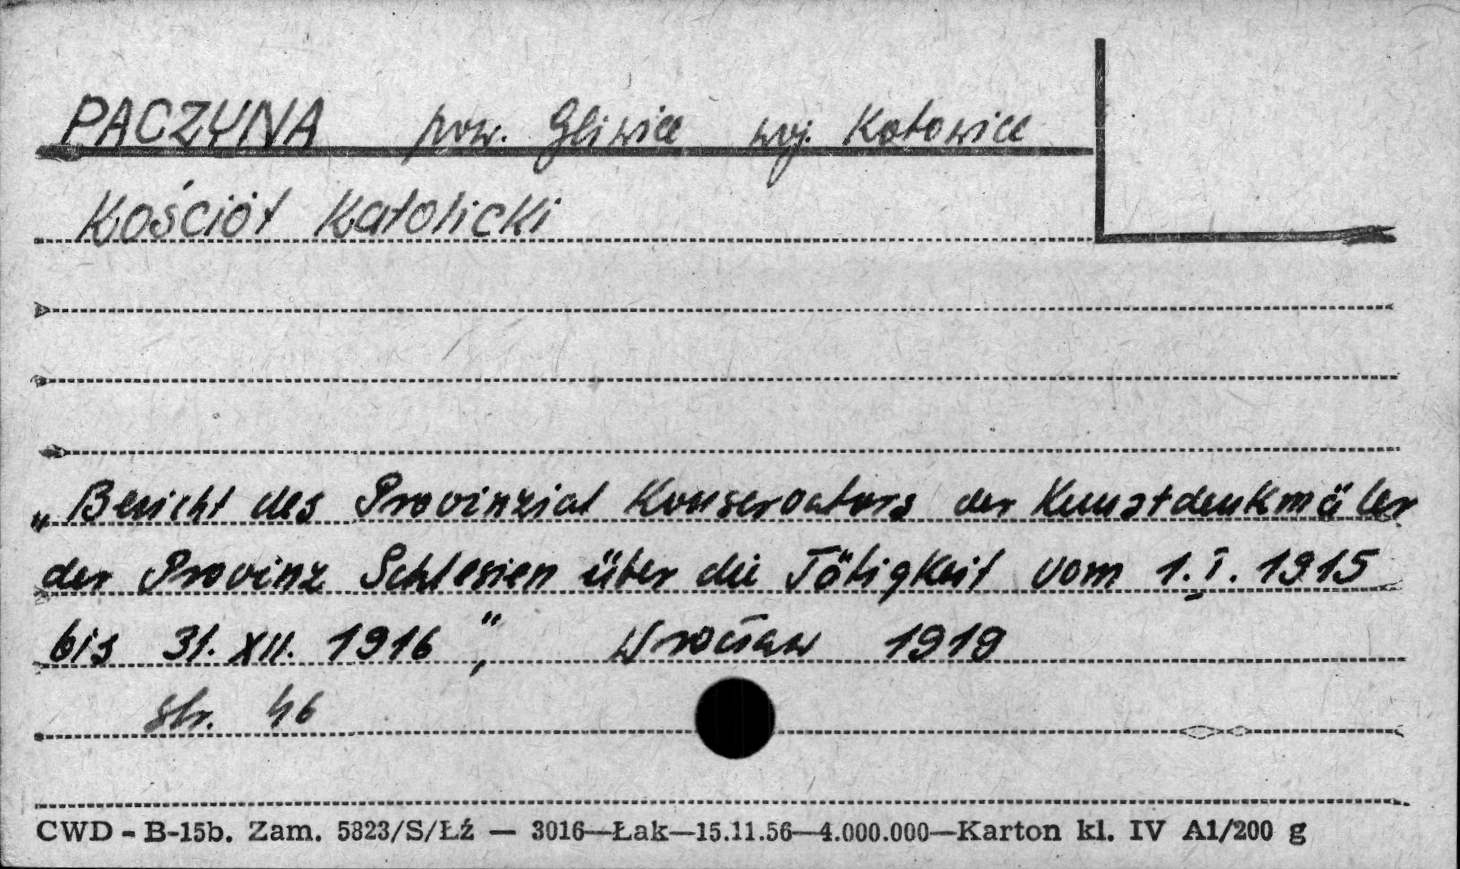 PACZYNA pow. Gliwice woj. Katowice
Kościół Katolicki
„Bericht des Provinzial Konservators der Kunstdenkmäler
der Provinz Schlesien über die Tätigkeit vom 1. I. 1915
bis 31. XII. 1916", Wrocław 1919
str. 46
CWD - B-15b. Zam. 5823/S/Łź — 3016—Łak—15.11.56—4.000.000—Karton kl. IV A1/200 g